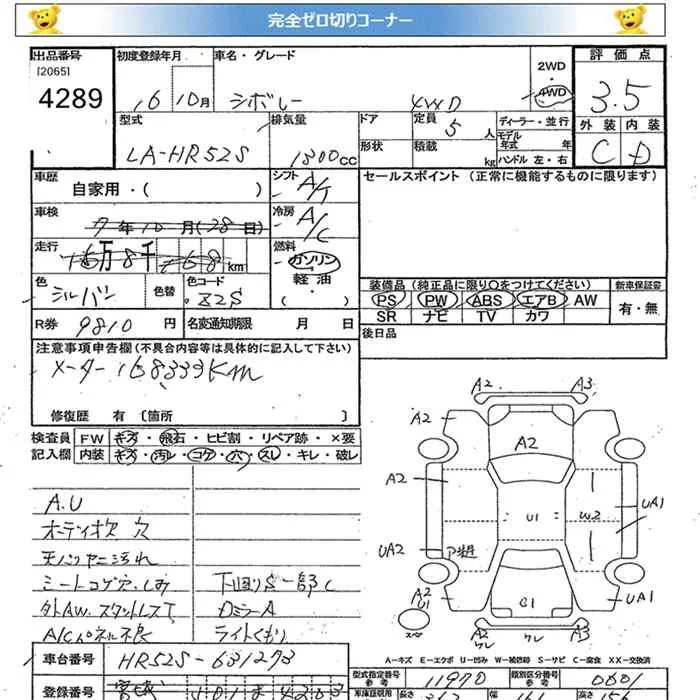 完全ゼロ切りコーナー
出品番号 初度登録年月 車名・グレード 2WD・4WD 評価点
[2065]
4289 16 10月 シボレー 4WD 3.5
型式 排気量 ドア 定員 5人 ディーラー・並行 外装 内装
LA-HR52S 1300cc 形状 積載 kg モデル年式 年 ハンドル 左・右 C D
車歴 自家用・( ) シフト A/T セールスポイント (正常に機能するものに限ります)
車検 7年10月(28日) 冷房 A/C
走行 16万8千 km 燃料 ガソリン
軽油・( )
色 シルバー 色替 色コード Z2S 装備品 (純正品に限り○をつけてください) 新車保証書
PS PW ABS エアB AW 有・無
SR ナビ TV カワ
R券 9810円 名変通知期限 月 日 後日品
注意事項申告欄 (不具合内容等は具体的に記入して下さい)
メーター 168333Km
修復歴 有 〔箇所 〕
検査員 FW キズ・飛石・ヒビ割・リペア跡・×要
記入欄 内装 キズ・汚レ・コゲ・穴・スレ・キレ・破レ
A2 A3
A2 A2
A2 U1 W2 UA1
UA2
A2 U1 C1 UA1
A2 A3
A.U
オーディオ欠 穴
天バリヤニ汚れ
シートコゲ穴.しみ 下回りS一部C
外AW.スタットレスT DミラーA
A/Cパネル不良 ライトくもり
車台番号 HR52S-631273
A-キズ E-エクボ U-凹み W-補修跡 S-サビ C-腐食 XX-交換済
登録番号 宮城 型式指定番号 参考 11970 類別区分番号 参考 0001
車庫証明用 参考 長さ 幅 高さ